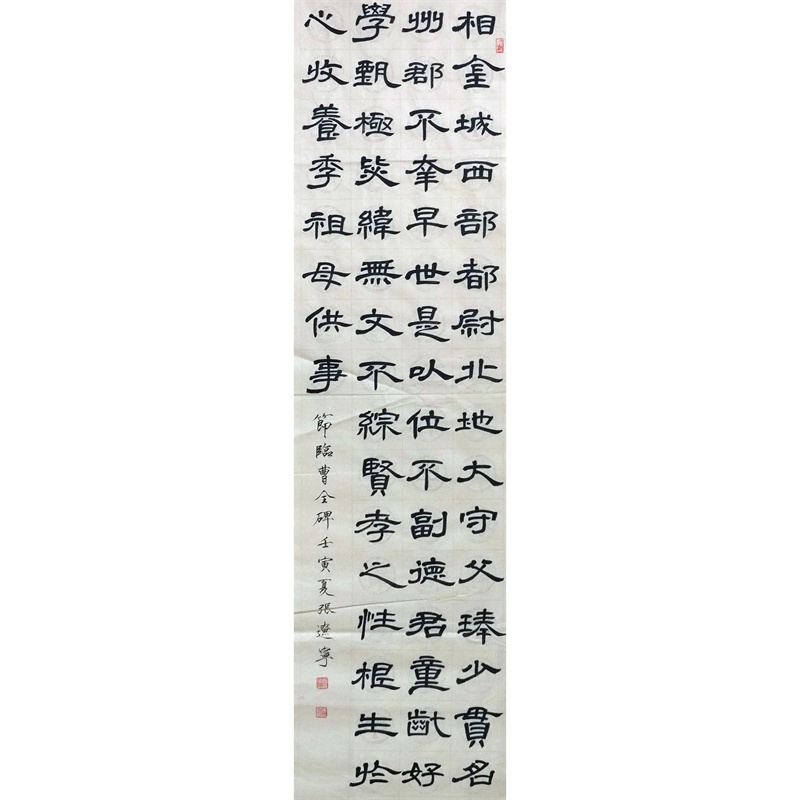 相金城西部都尉北地大守父琫少貫名
州郡不幸早世是以位不副德君童齔好
學甄極毖緯無文不綜賢孝之性根生於
心收養季祖母供事
節臨曹全碑壬寅夏張遼寧